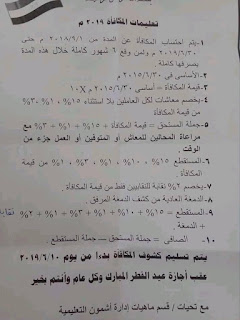 تعليمات المكافأة ٢٠١٩ م
١-يتم احتساب المكافأة عن المدة من ٢٠١٨/٦/١ م حتى
٢٠١٩/٦/٣٠ م ولمن وقع ٦ شهور كاملة خلال هذه المدة
يصرفها كاملة.
٢-الأساسى فى ٢٠١٥/٦/٣٠ م
٣-قيمة المكافأة = الأساسى ٢٠١٥/٦/٣٠ م X ١٠
٤-يخصم معاشات لكل العاملين بلا استثناء ١٥% ١% ٣%
٥-جملة المستحق = قيمة المكافأة + ١٥% + ١% + ٣% مع
مراعاة المحالين للمعاش أو المتوفين أو العمل جزء من
الوقت.
٦-المستقطع ١٥% ، ١٠% ، ١% ، ٣% ، ١% من قيمة
المكافأة.
٧-يخصم ٢% نقابة للنقابيين فقط من قيمة المكافأة.
٨-الدمغة العادية من كشف الدمغة المرفق.
٩-المستقطع = ١٥% + ١٠% + ١% + ٣% + ١% + ٢% نقابة
+ الدمغة.
١٠- الصافى = جملة المستحق – جملة المستقطع.
يتم تسليم كشوف المكافأة بدءا من يوم ٢٠١٩/٦/١٠
عقب أجازة عيد الفطر المبارك وكل عام وأنتم بخير
مع تحيات / قسم ماهيات إدارة أشمون التعليمية